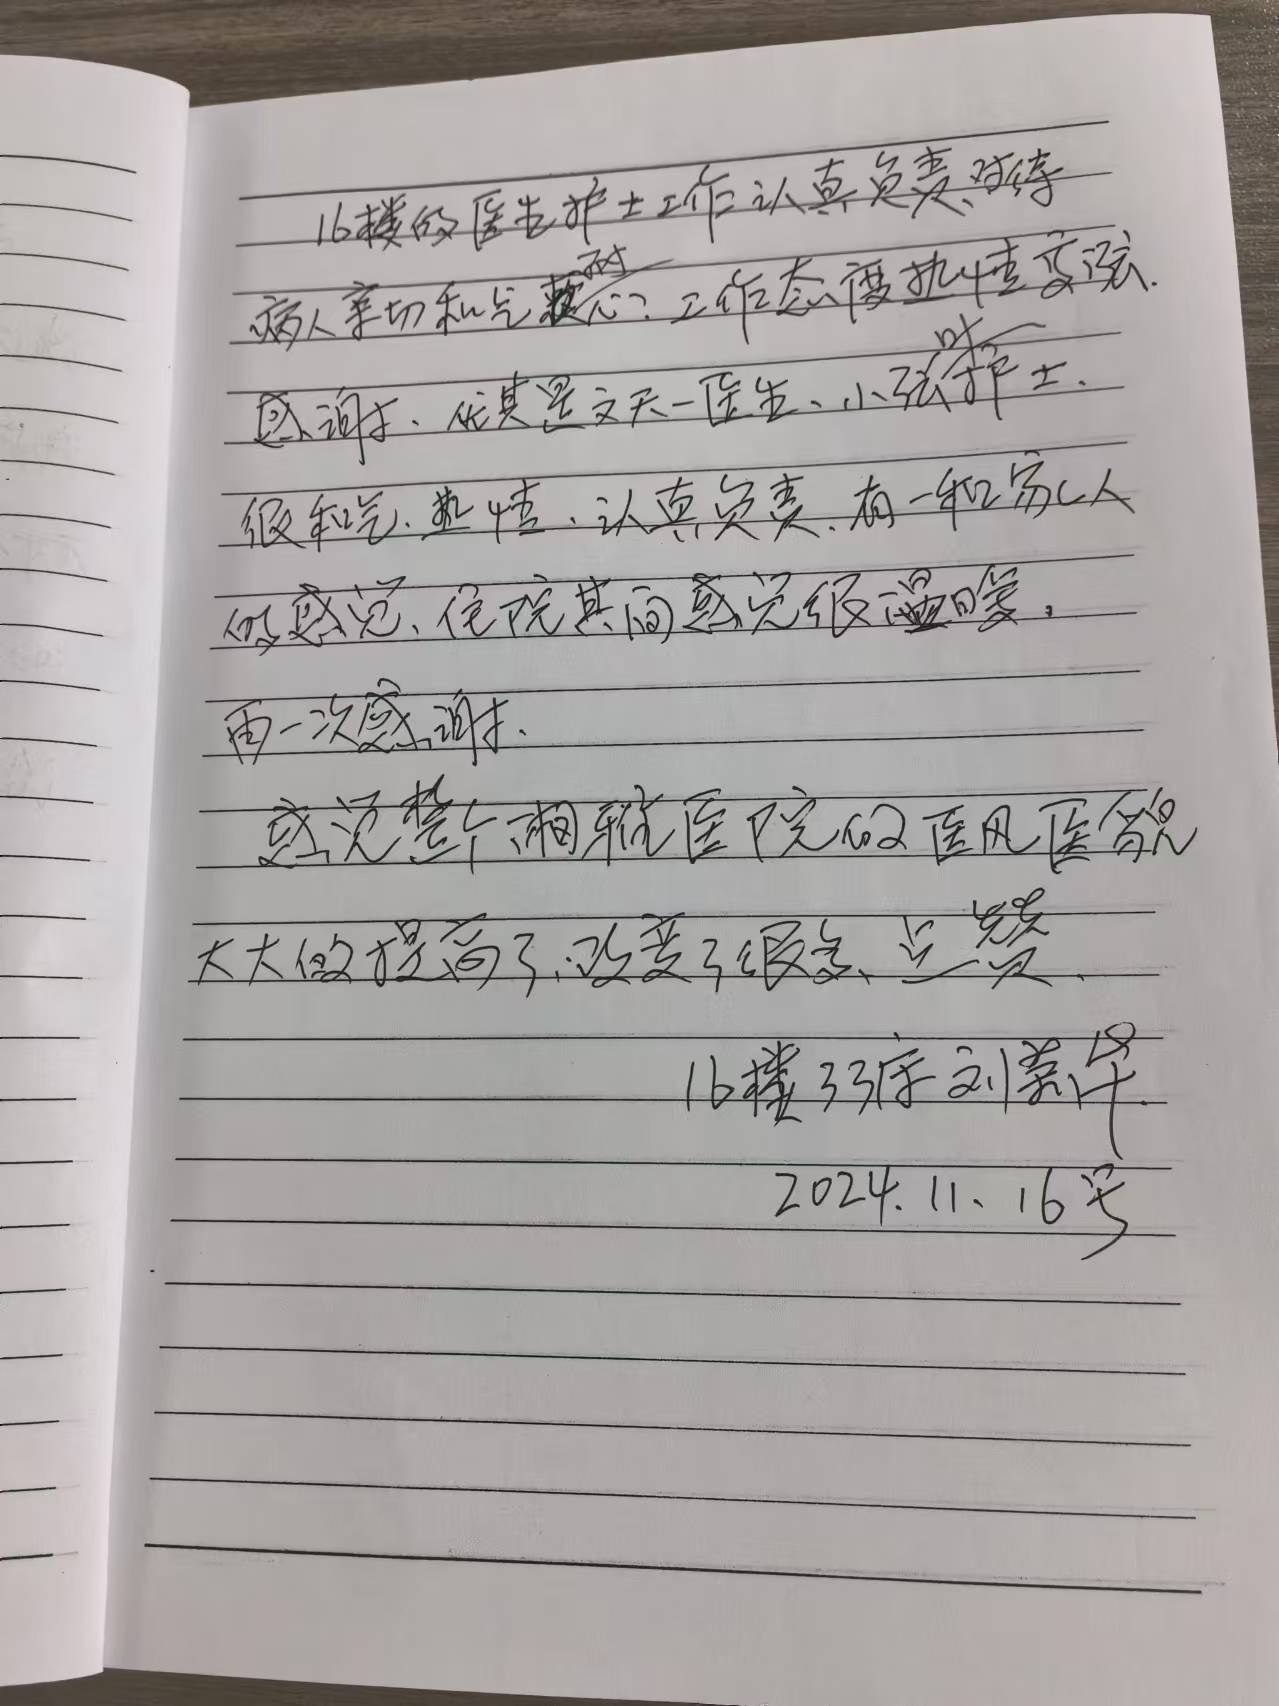 16楼的医生护士工作认真负责、对待
病人亲切和气耐心?工作态度热情
感谢、优其是文天一医生、小张叶护士.
很和气、热情、认真负责、有一种家人
的感觉、住院其间感觉很温暖,
再一次感谢.
感觉整个湘雅医院的医风医貌
大大的提高了、改变了很多、点赞.
16楼33床刘
2024.11、16号